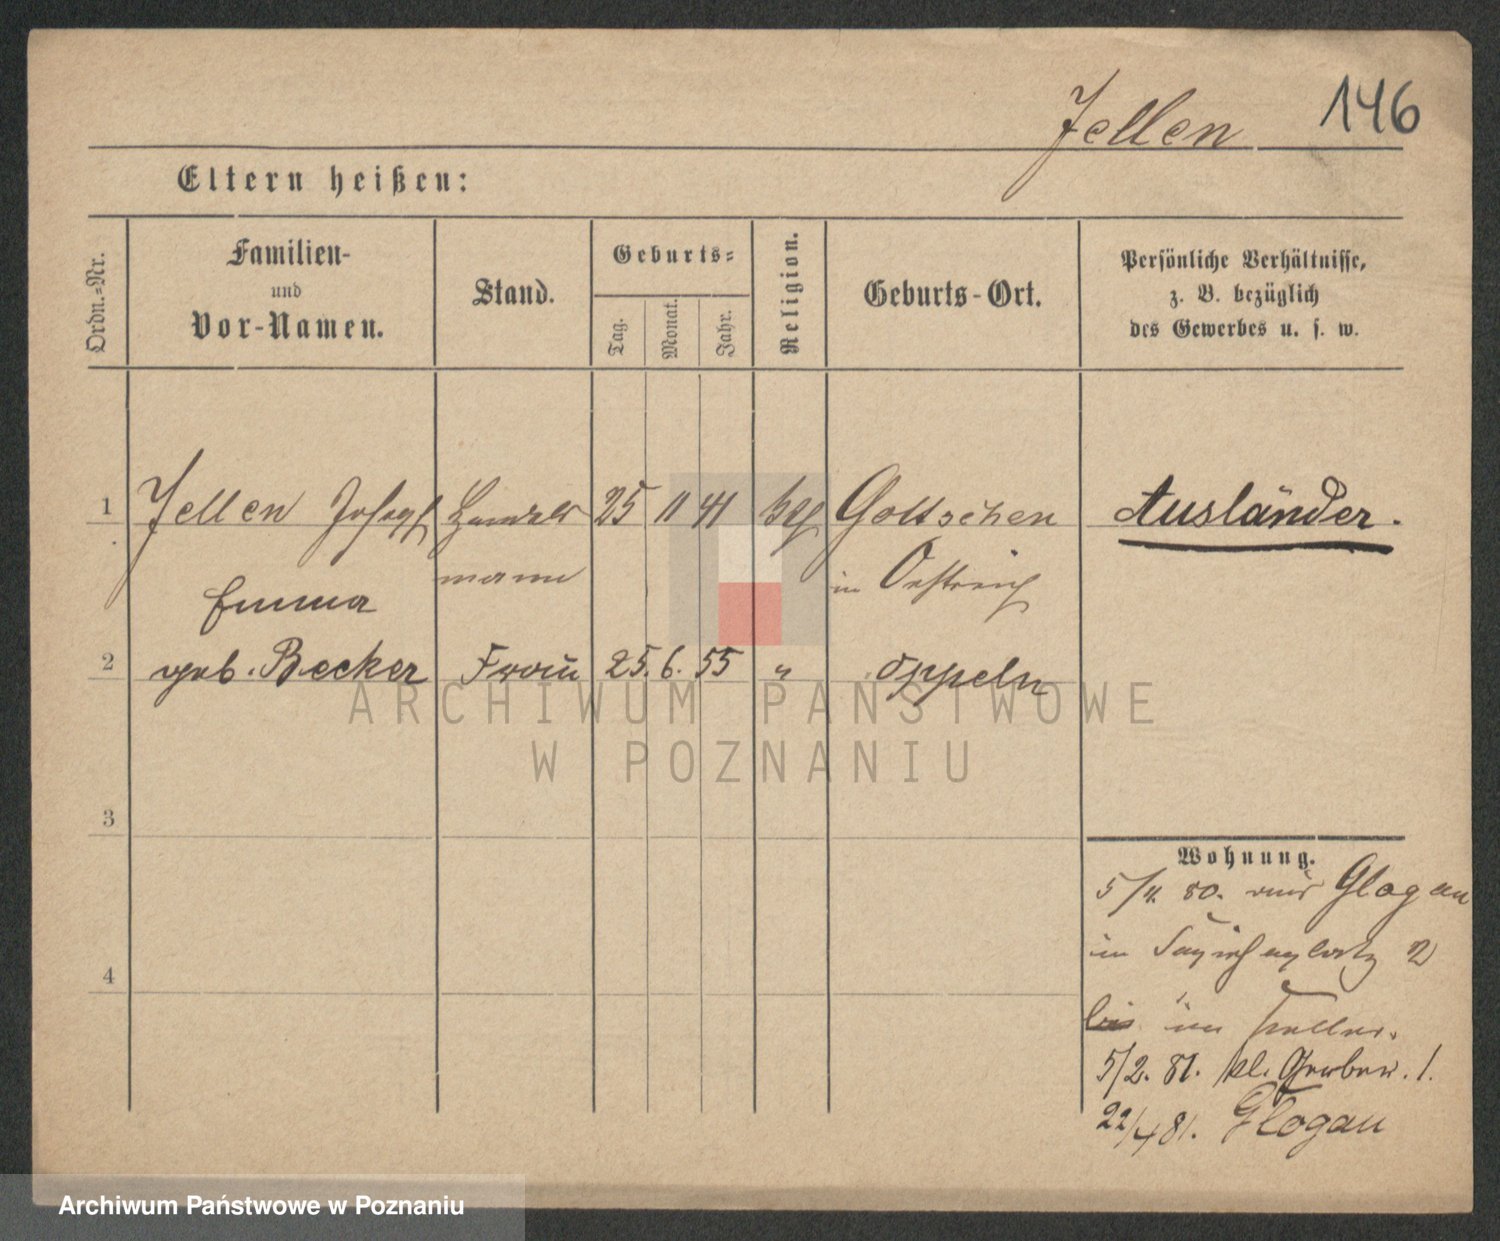 Jellen 146
Eltern heißen:
Ordn.-Nr.
Familien-
und
Vor-Namen.
Stand.
Geburts-
Tag.
Monat.
Jahr.
Religion.
Geburts-Ort.
Persönliche Verhältnisse,
z. B. bezüglich
des Gewerbes u. s. w.
1 Jellen Joseph Handels 25 11 41 kath Gottschen Ausländer.
mann in Oestreich
Emma
2 geb. Becker Frau 25. 6. 55 " Oppeln
3
4
Wohnung.
5/11. 80. aus Glogau
in Sapiehaplatz 2
bis im Keller.
5/2. 81. kl. Gerber. 1.
22/4 81. Glogau
ARCHIWUM PAŃSTWOWE
W POZNANIU
Archiwum Państwowe w Poznaniu